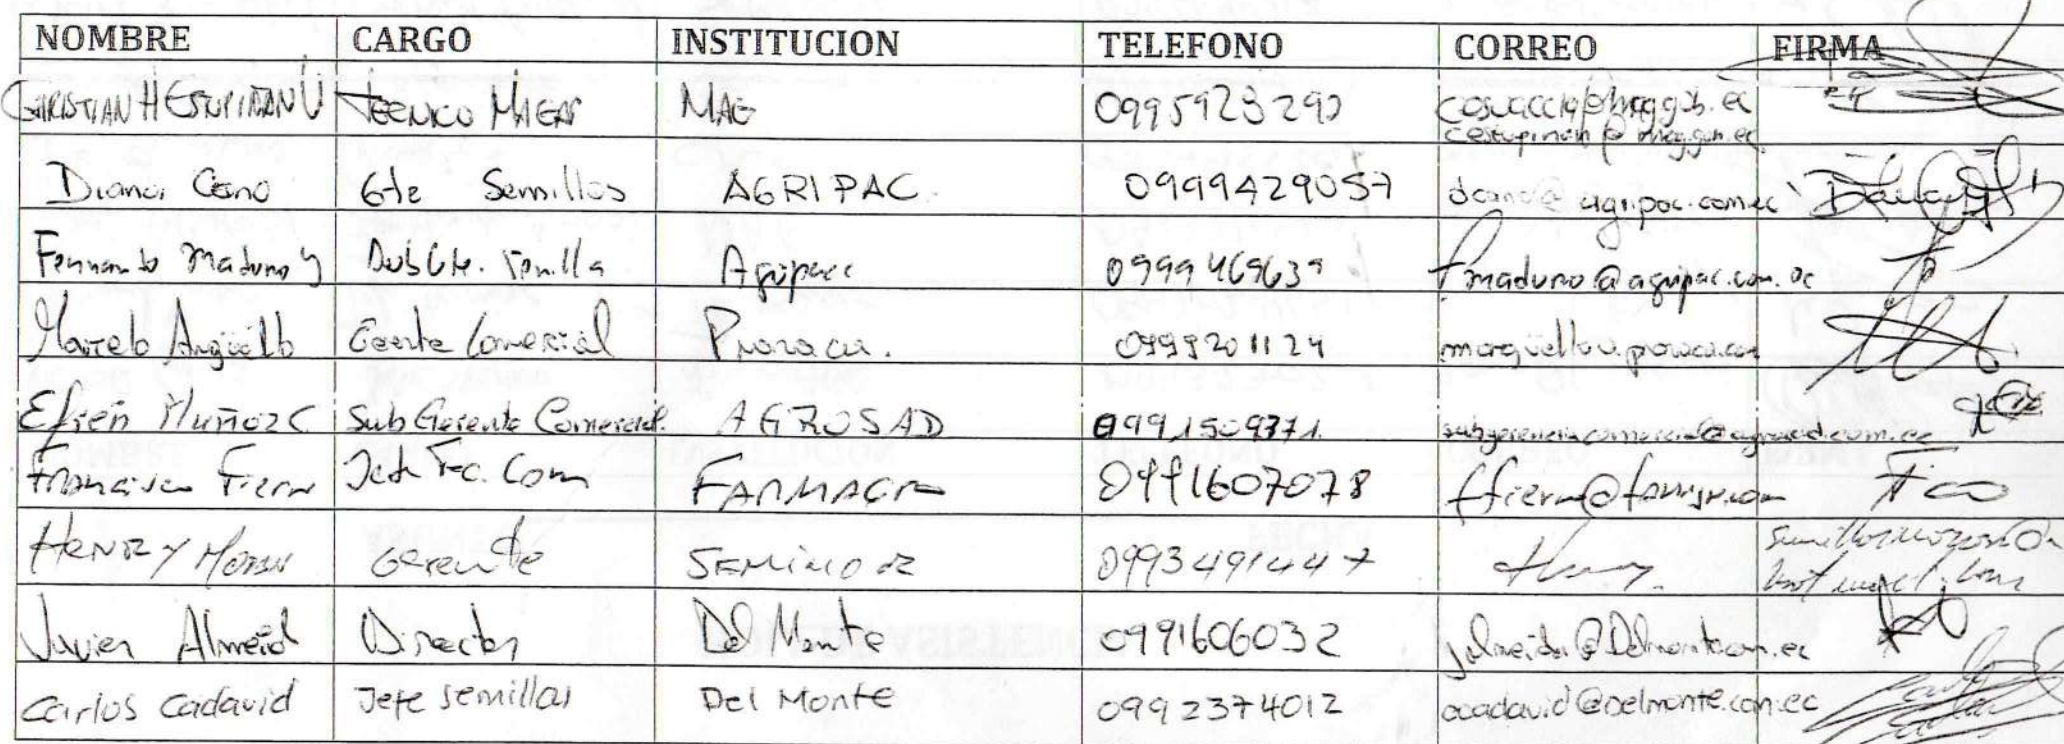 NOMBRE CARGO INSTITUCION TELEFONO CORREO FIRMA
CHRISTIAN H ESTUPIÑAN V TECNICO MAG 099592329
cestupinan@mag.gob.ec
Diana Cano Gte Semillas AGRIPAC 0999429057 dcano@agripac.com.ec
Fernando Maduro y SubGte. Semilla Agripac 0999469639 fmaduro@agripac.com.ec
Marcelo Argüello Gerente Comercial Pronaca. 0999201124
Efrén Muñoz C. Sub Gerente Comercial. AGROSAD 0991509371 subgerenciacomercial@agrosad.com.ec
Francisco Fierro Jefe Tec. Com FARMAGRO 0991607078
HENRY Moran Gerente SEMIMOR 0993491447
Javier Almeid Director Del Monte 0991606032 jalmeida@Delmonte.com.ec
Carlos Cadavid Jefe semillas Del Monte 0992374012 ccadavid@Delmonte.com.ec